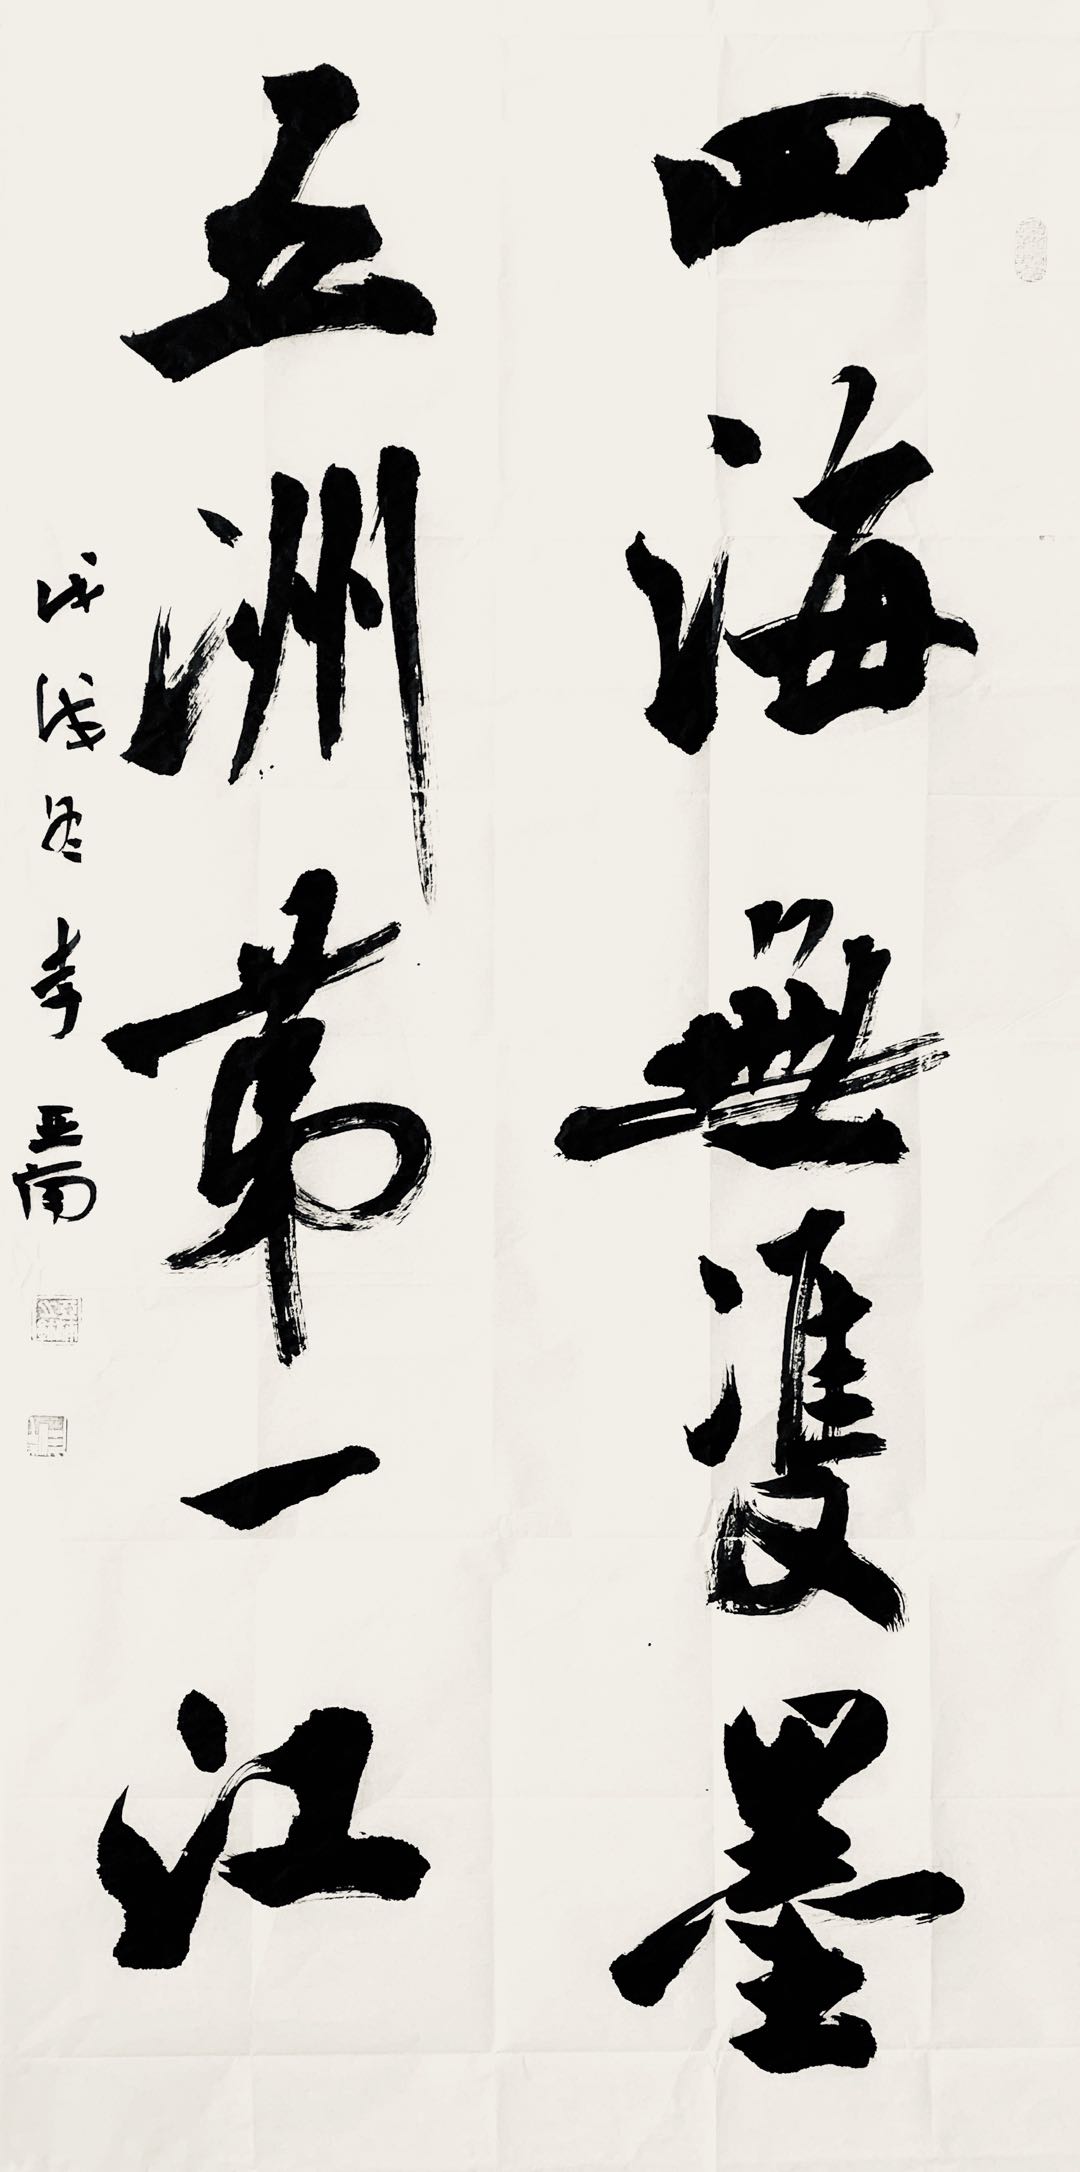 四海無雙墨
五洲第一江
戊戌冬李亚南